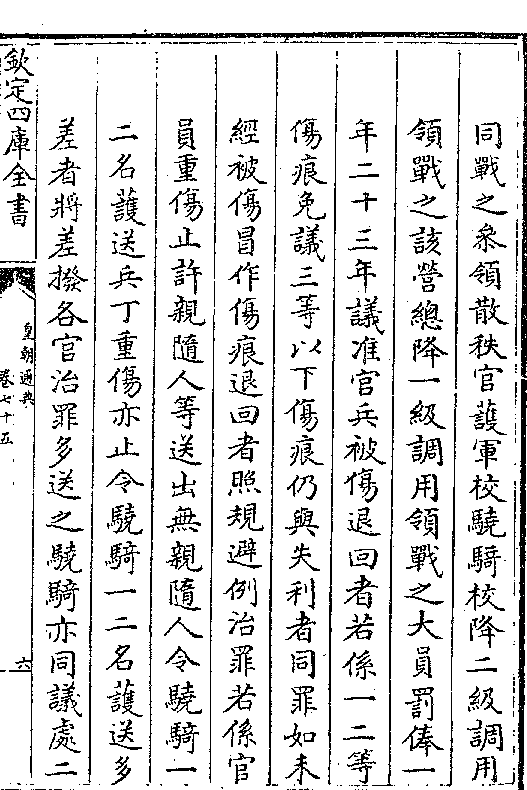 同戰之叅領散秩官護軍校驍騎校降二級調用
領戰之該營總降一級調用領戰之大員罰俸一
年二十三年議准官兵被傷退回者若係一二等
傷痕免議三等以下傷痕仍與失利者同罪如未
經被傷冒作傷痕退回者照規避例治罪若係官
員重傷止許親隨人等送出無親隨人令驍騎一
二名護送兵丁重傷亦止令驍騎一二名護送多
差者將差撥各官治罪多送之驍騎亦同議處二
欽定四庫全書
皇朝通典
卷七十五
六